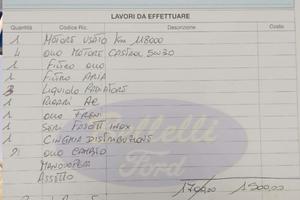 LAVORI DA EFFETTUARE
Quantità Codice Ric. Descrizione Costo
1 MOTORE USATO Km 118000
4 OLIO MOTORE CASTROL 5W30
1 FILTRO OLIO
1 FILTRO ARIA
3 LIQUIDO RADIATORE
1 AC
1 OLIO FRENI
1 SERIE INOX
1 CINGHIA DISTRIBUZIONE
2 OLIO CAMBIO
MANODOPERA
ASSETTO
1700,00 1500,00
Ford